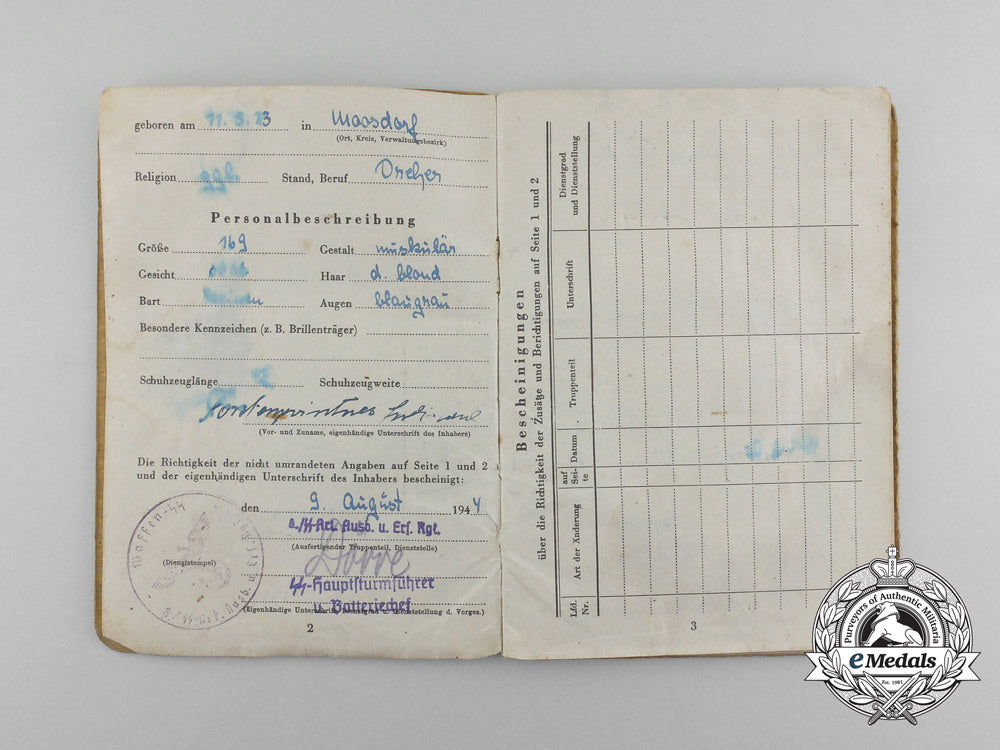 geboren am 11.9. 23 in Moosdorf
(Ort, Kreis, Verwaltungsbezirk)
Religion ggl. Stand, Beruf Dreher
Personalbeschreibung
Größe 169 Gestalt muskulär
Gesicht oval Haar d. blond
Bart keinen Augen blaugrau
Besondere Kennzeichen (z. B. Brillenträger)
Schuhzeuglänge Schuhzeugweite
(Vor- und Zuname, eigenhändige Unterschrift des Inhabers)
Die Richtigkeit der nicht umrandeten Angaben auf Seite 1 und 2
und der eigenhändigen Unterschrift des Inhabers bescheinigt:
den 9. August 1944
8./SS-Art. Ausb. u. Ers. Rgt.
(Ausfertigender Truppenteil, Dienststelle)
Dörre
SS-Hauptsturmführer
u. Batteriechef
(Eigenhändige Unterschrift, Dienstgrad u. Dienststellung d. Vorges.)
Waffen-SS
(Dienststempel)
2
Bescheinigungen
über die Richtigkeit der Zusätze und Berichtigungen auf Seite 1 und 2
Lfd. Nr.
Art der Änderung
auf Sei- te
Datum
Truppenteil
Unterschrift
Dienstgrad und Dienststellung
3
Purveyors of Authentic Militaria
eMedals
Est. 1981